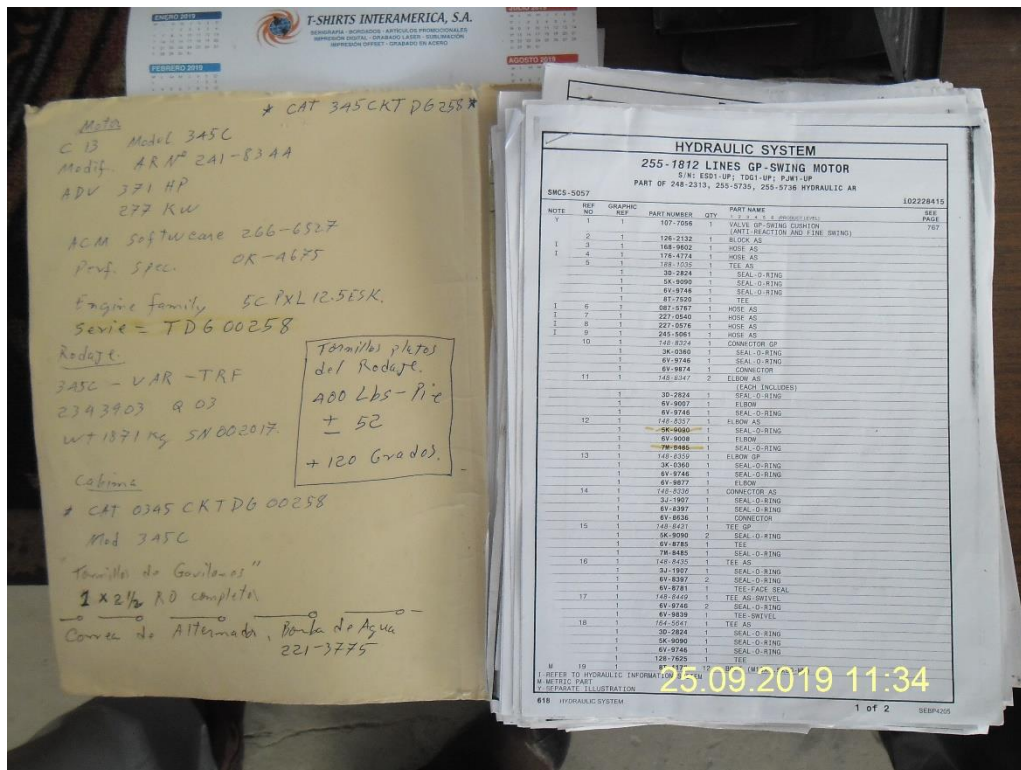 ENERO 2019
FEBRERO 2019
T-SHIRTS INTERAMERICA, S.A.
SERIGRAFIA - BORDADOS - ARTICULOS PROMOCIONALES
IMPRESIÓN DIGITAL - GRABADO LASER - SUBLIMACIÓN
IMPRESIÓN OFFSET - GRABADO EN ACERO
JULIO 2019
AGOSTO 2019
* CAT 345CKTDG258*
Motor
C 13 Model 345C
Modif. AR Nº 241-83AA
ADV 371 HP
277 KW
ACM Softwcare 266-6527
Perf. Spec. OK-4675
Engine family 5CPXL12.5ESK.
Serie = TDG00258
Rodaje.
345C - VAR - TRF
2343903 Q 03
WT 1871 Kg SN 002017.
Tornillos platos
del Rodaje.
400 Lbs-Pie
± 52
+ 120 Grados.
Cabina
* CAT 0345 CKTDG 00258
Mod 345C
"Tornillos de Gavilanes"
1 x 2 1/2 RO completa
Correa de Alternador, Bomba de Agua
221-3775
HYDRAULIC SYSTEM
255-1812 LINES GP-SWING MOTOR
S/N: ESD1-UP; TDG1-UP; PJW1-UP
PART OF 248-2313, 255-5735, 255-5736 HYDRAULIC AR
SMCS-5057 i02228415
NOTE REF NO GRAPHIC REF PART NUMBER QTY PART NAME SEE PAGE
Y 1 1 107-7056 1 VALVE GP-SWING CUSHION 767
(ANTI-REACTION AND FINE SWING)
2 1 126-2132 1 BLOCK AS
I 3 1 168-9602 1 HOSE AS
I 4 1 176-4774 1 HOSE AS
5 1 188-1035 1 TEE AS
1 3D-2824 1 SEAL-O-RING
1 5K-9090 1 SEAL-O-RING
1 6V-9746 1 SEAL-O-RING
1 8T-7520 1 TEE
I 6 1 087-5787 1 HOSE AS
I 7 1 227-0540 1 HOSE AS
I 8 1 227-0576 1 HOSE AS
I 9 1 245-5061 1 HOSE AS
10 1 148-8324 1 CONNECTOR GP
1 3K-0360 1 SEAL-O-RING
1 6V-9746 1 SEAL-O-RING
1 6V-9874 1 CONNECTOR
11 1 148-8347 2 ELBOW AS
(EACH INCLUDES)
1 3D-2824 1 SEAL-O-RING
1 6V-9007 1 ELBOW
1 6V-9746 1 SEAL-O-RING
12 1 148-8357 1 ELBOW AS
1 5K-9090 1 SEAL-O-RING
1 6V-9008 1 ELBOW
1 7M-8485 1 SEAL-O-RING
13 1 148-8359 1 ELBOW GP
1 3K-0360 1 SEAL-O-RING
1 6V-9746 1 SEAL-O-RING
1 6V-9877 1 ELBOW
14 1 148-8336 1 CONNECTOR AS
1 3J-1907 1 SEAL-O-RING
1 6V-8397 1 SEAL-O-RING
1 6V-8636 1 CONNECTOR
15 1 148-8431 1 TEE GP
1 5K-9090 2 SEAL-O-RING
1 6V-8785 1 TEE
1 7M-8485 1 SEAL-O-RING
16 1 148-8435 1 TEE AS
1 3J-1907 1 SEAL-O-RING
1 6V-8397 2 SEAL-O-RING
1 6V-8781 1 TEE-FACE SEAL
17 1 148-8449 1 TEE AS-SWIVEL
1 6V-9746 2 SEAL-O-RING
1 6V-9839 1 TEE-SWIVEL
18 1 164-5641 1 TEE AS
1 3D-2824 1 SEAL-O-RING
1 5K-9090 1 SEAL-O-RING
1 6V-9746 1 SEAL-O-RING
1 128-7625 1 TEE
M 19 1 12
I-REFER TO HYDRAULIC INFORMATION SYSTEM
M-METRIC PART
Y-SEPARATE ILLUSTRATION
25.09.2019 11:34
618 HYDRAULIC SYSTEM 1 of 2 SEBP4205